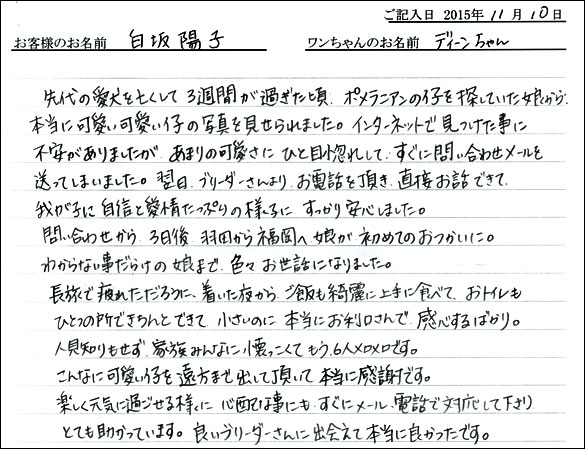 ご記入日 2015年 11月 10日
お客様のお名前 白坂 陽子 ワンちゃんのお名前 ディーンちゃん
先代の愛犬を亡くして 3週間が過ぎた頃、ポメラニアンの仔を探していた娘から、
本当に可愛い可愛い仔の写真を見せられました。インターネットで見つけた事に
不安がありましたが、あまりの可愛さに ひと目惚れして、すぐに問い合わせメールを
送ってしまいました。翌日、ブリーダーさんより、お電話を頂き、直接お話できて、
我が子に自信と愛情たっぷりの様子に すっかり安心しました。
問い合わせから、3日後、羽田から福岡へ娘が初めてのおつかいに。
わからない事だらけの娘まで、色々お世話になりました。
長旅で疲れただろうに、着いた夜から、ご飯も綺麗に上手に食べて、おトイレも
ひとつの所できちんとできて、小さいのに 本当にお利口さんで、感心するばかり。
人見知りもせず、家族みんなに懐っこくて もう、6人メロメロです。
こんなに可愛い仔を 遠方まで出して頂いて 本当に感謝です。
楽しく元気に過ごせる様に 心配な事にも、すぐにメール、電話で対応して下さり
とても助かっています。良いブリーダーさんに出会えて本当に良かったです。